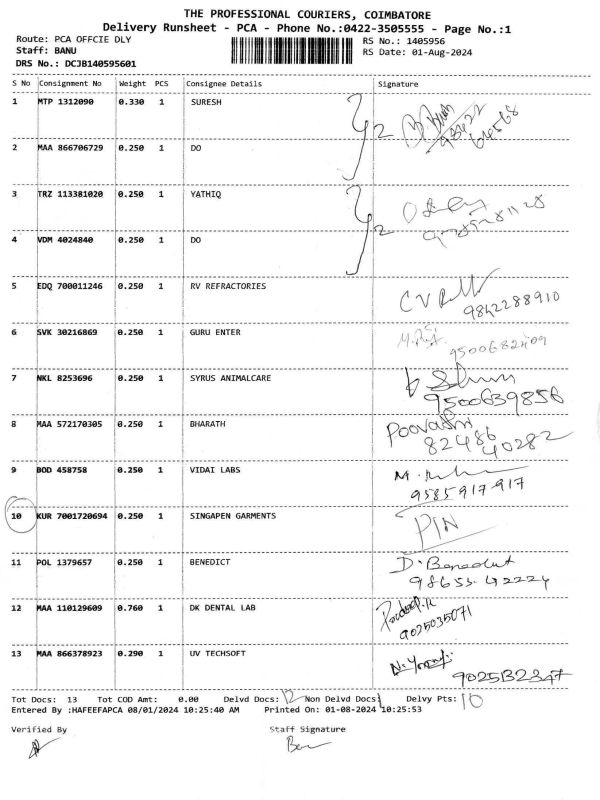 THE PROFESSIONAL COURIERS, COIMBATORE
Delivery Runsheet - PCA - Phone No.:0422-3505555 - Page No.:1
Route: PCA OFFCIE DLY
RS No.: 1405956
Staff: BANU
RS Date: 01-Aug-2024
DRS No.: DCJB140595601
S No Consignment No Weight PCS Consignee Details Signature
1 MTP 1312090 0.330 1 SURESH
2 MAA 866706729 0.250 1 DO
3 TRZ 113381020 0.250 1 YATHIQ
4 VDM 4024840 0.250 1 DO
5 EDQ 700011246 0.250 1 RV REFRACTORIES
9842288910
6 SVK 30216869 0.250 1 GURU ENTER
7 NKL 8253696 0.250 1 SYRUS ANIMALCARE
9500639856
8 MAA 572170305 0.250 1 BHARATH Poovathi
82486
40282
9 BOD 458758 0.250 1 VIDAI LABS
9585917917
10 KUR 7001720694 0.250 1 SINGAPEN GARMENTS PIN
11 POL 1379657 0.250 1 BENEDICT D. Benedict
98655 42224
12 MAA 110129609 0.760 1 DK DENTAL LAB
9025035071
13 MAA 866378923 0.290 1 UV TECHSOFT
Tot Docs: 13 Tot COD Amt: 0.00 Delvd Docs: 12 Non Delvd Docs: 1 Delvy Pts: 10
Entered By :HAFEEFAPCA 08/01/2024 10:25:40 AM Printed On: 01-08-2024 10:25:53
Verified By Staff Signature